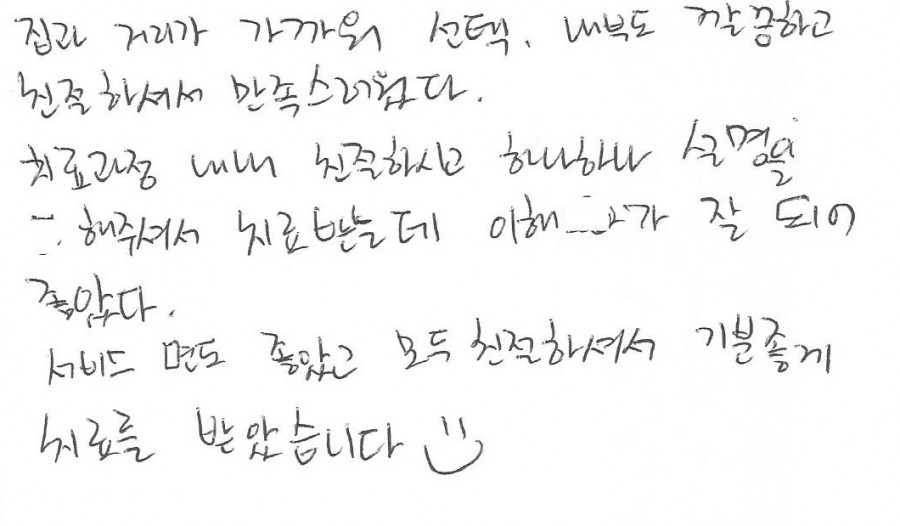 집과 거리가 가까워 선택. 내부도 깔끔하고
친절하셔서 만족스러웠다.
치료과정 내내 친절하시고 하나하나 설명을
해주셔서 치료받는데 이해 가 잘 되어
좋았다.
서비스 면도 좋았고 모두 친절하셔서 기분좋게
치료를 받았습니다